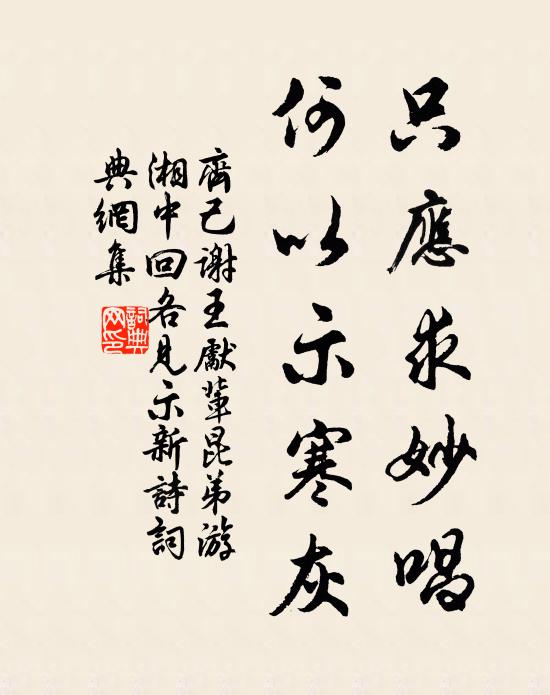 只應求妙唱
何以示寒灰
齊己謝王獻輩昆弟游
湘中回各見示新詩詞
典網集
詞典网印